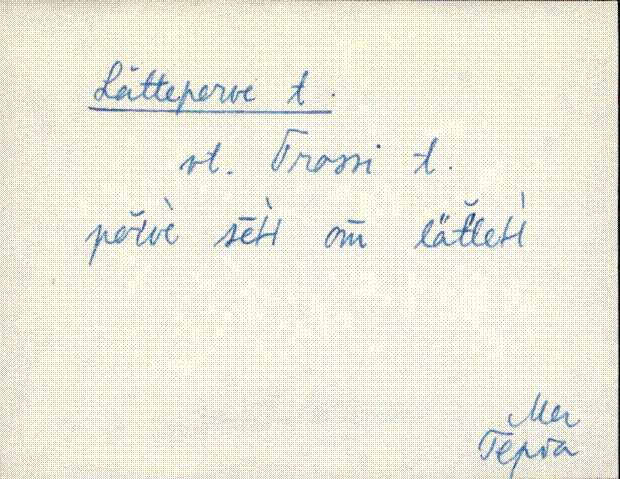 Lätteperve t.
vt. Trossi t.
per̆vè sēti om̄ lät̆leti
Mer
Tepia